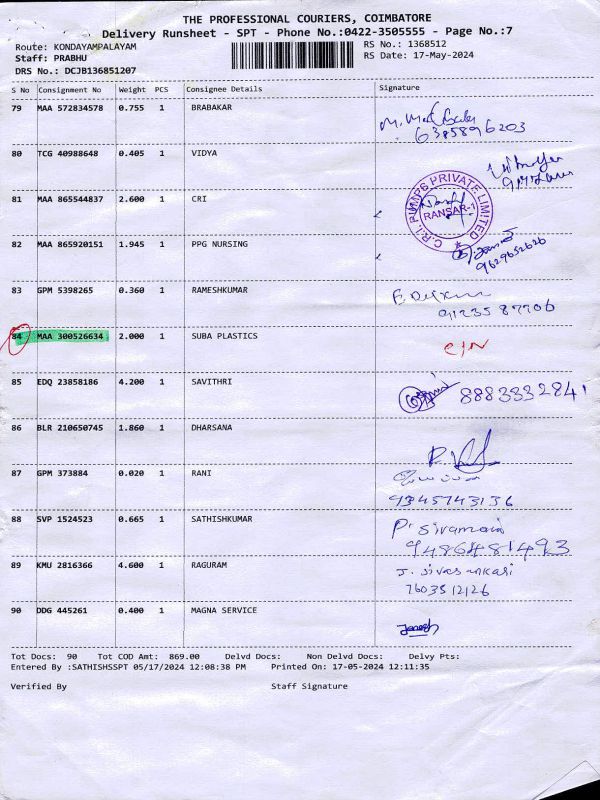 THE PROFESSIONAL COURIERS, COIMBATORE
Delivery Runsheet - SPT - Phone No.:0422-3505555 - Page No.:7
Route: KONDAYAMPALAYAM RS No.: 1368512
Staff: PRABHU RS Date: 17-May-2024
DRS No.: DCJB136851207
S No Consignment No Weight PCS Consignee Details Signature
79 MAA 572834578 0.755 1 BRABAKAR
6385896203
80 TCG 40988648 0.405 1 VIDYA
81 MAA 865544837 2.600 1 CRI
C.R.I. PUMPS PRIVATE LIMITED
RANSAR-1
82 MAA 865920151 1.945 1 PPG NURSING
9629652626
83 GPM 5398265 0.360 1 RAMESHKUMAR
91235 87706
84 MAA 300526634 2.000 1 SUBA PLASTICS C/N
85 EDQ 23858186 4.200 1 SAVITHRI 8883332841
86 BLR 210650745 1.860 1 DHARSANA
87 GPM 373884 0.020 1 RANI
9345743136
88 SVP 1524523 0.665 1 SATHISHKUMAR P. Sivamain
9486481493
89 KMU 2816366 4.600 1 RAGURAM J. Sivasankari
7603512126
90 DDG 445261 0.400 1 MAGNA SERVICE
Tot Docs: 90 Tot COD Amt: 869.00 Delvd Docs: Non Delvd Docs: Delvy Pts:
Entered By :SATHISHSSPT 05/17/2024 12:08:38 PM Printed On: 17-05-2024 12:11:35
Verified By Staff Signature